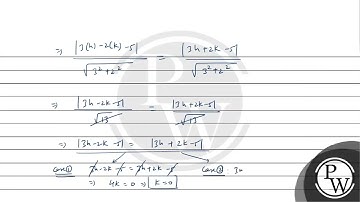 ⇒ |3(h)-2(k)-5| / √(3²+2²) = |3h+2k-5| / √(3²+2²)
⇒ |3h-2k-5| / √13 = |3h+2k-5| / √13
⇒ |3h-2k-5| = |3h+2k-5|
Case① 3h-2k-5 = 3h+2k-5 Case② 3
⇒ 4k=0 ⇒ k=0
PW
PW